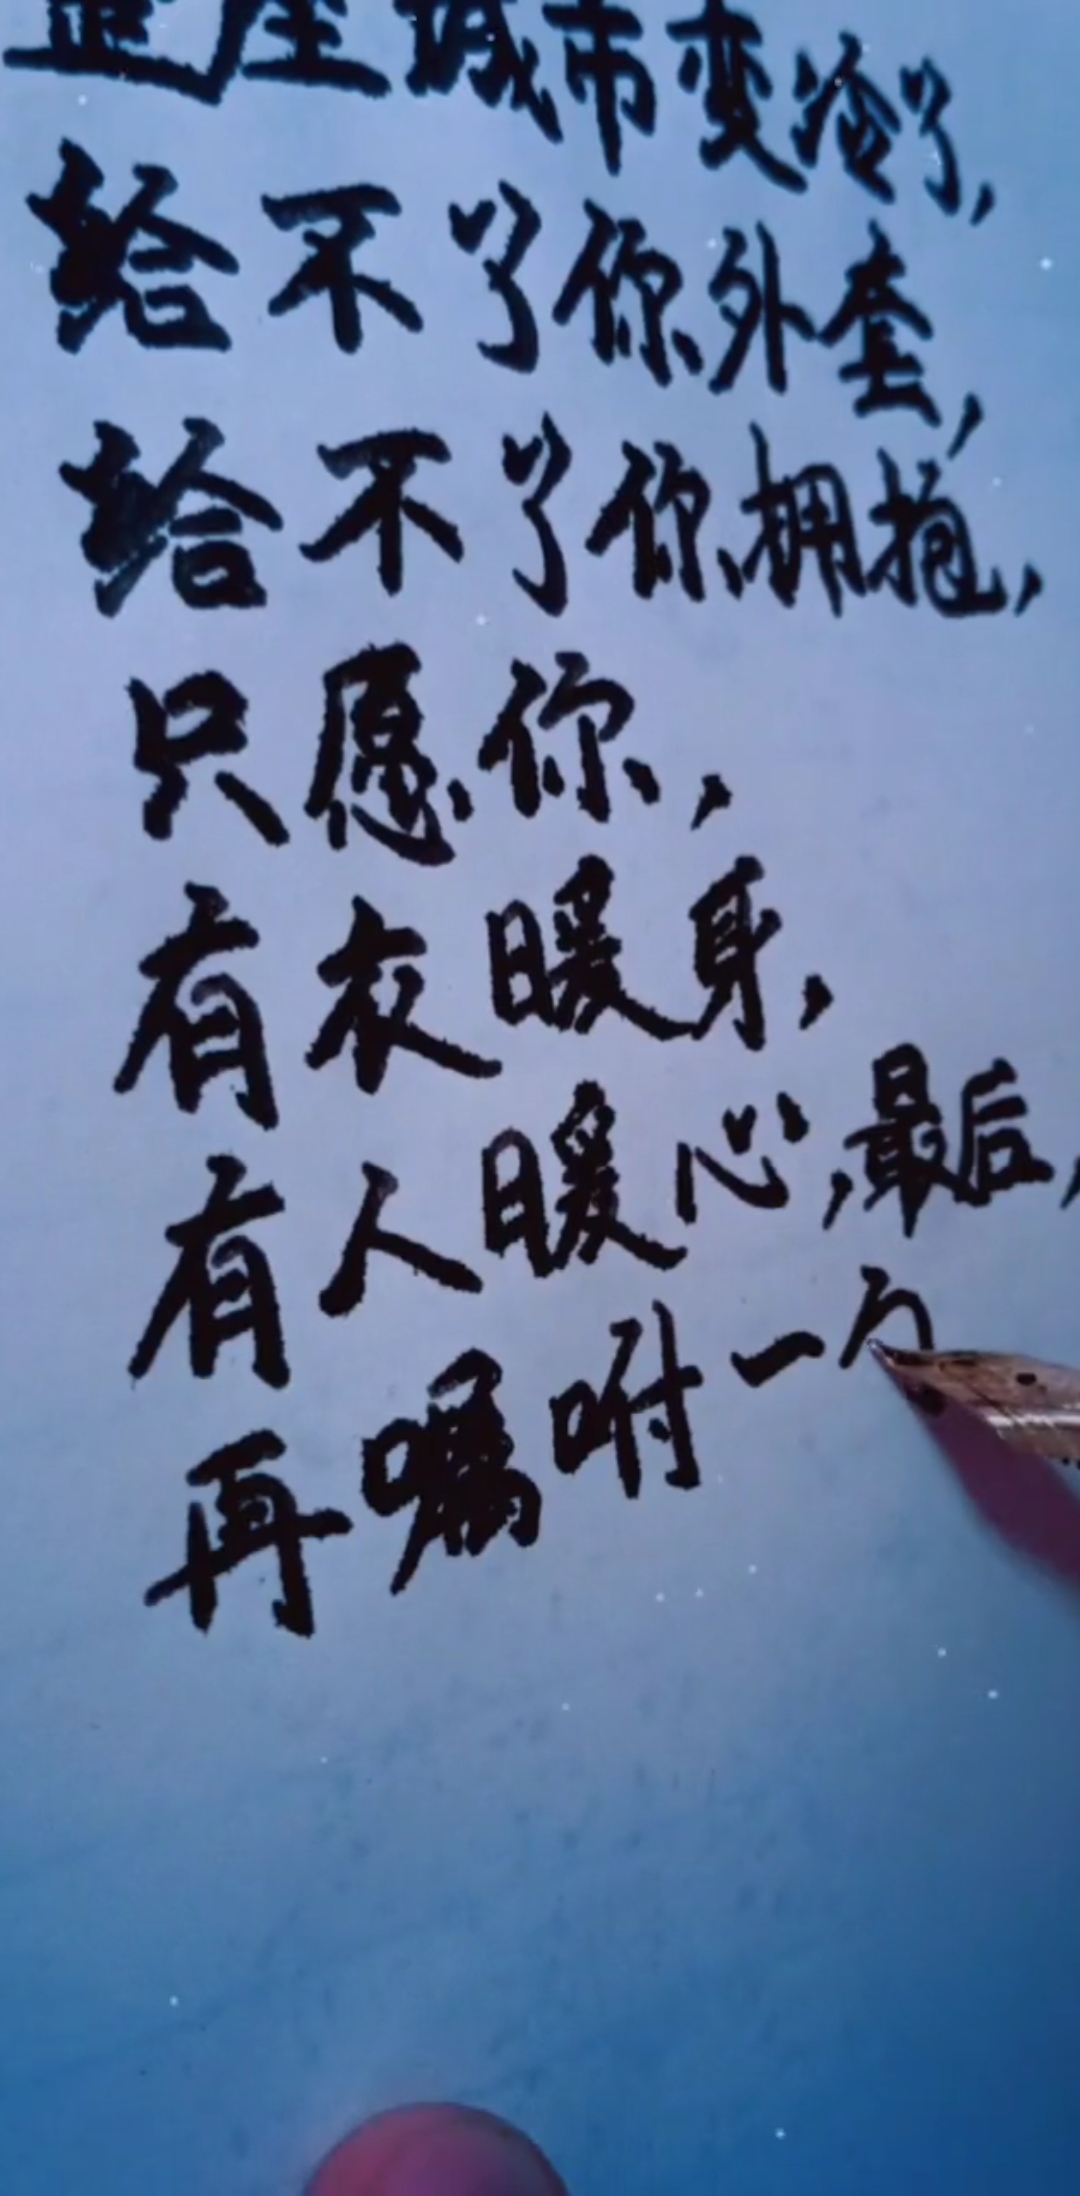 整座城市变冷了,
给不了你外套,
给不了你拥抱,
只愿你,
有衣暖身,
有人暖心,最后,
再嘱咐一